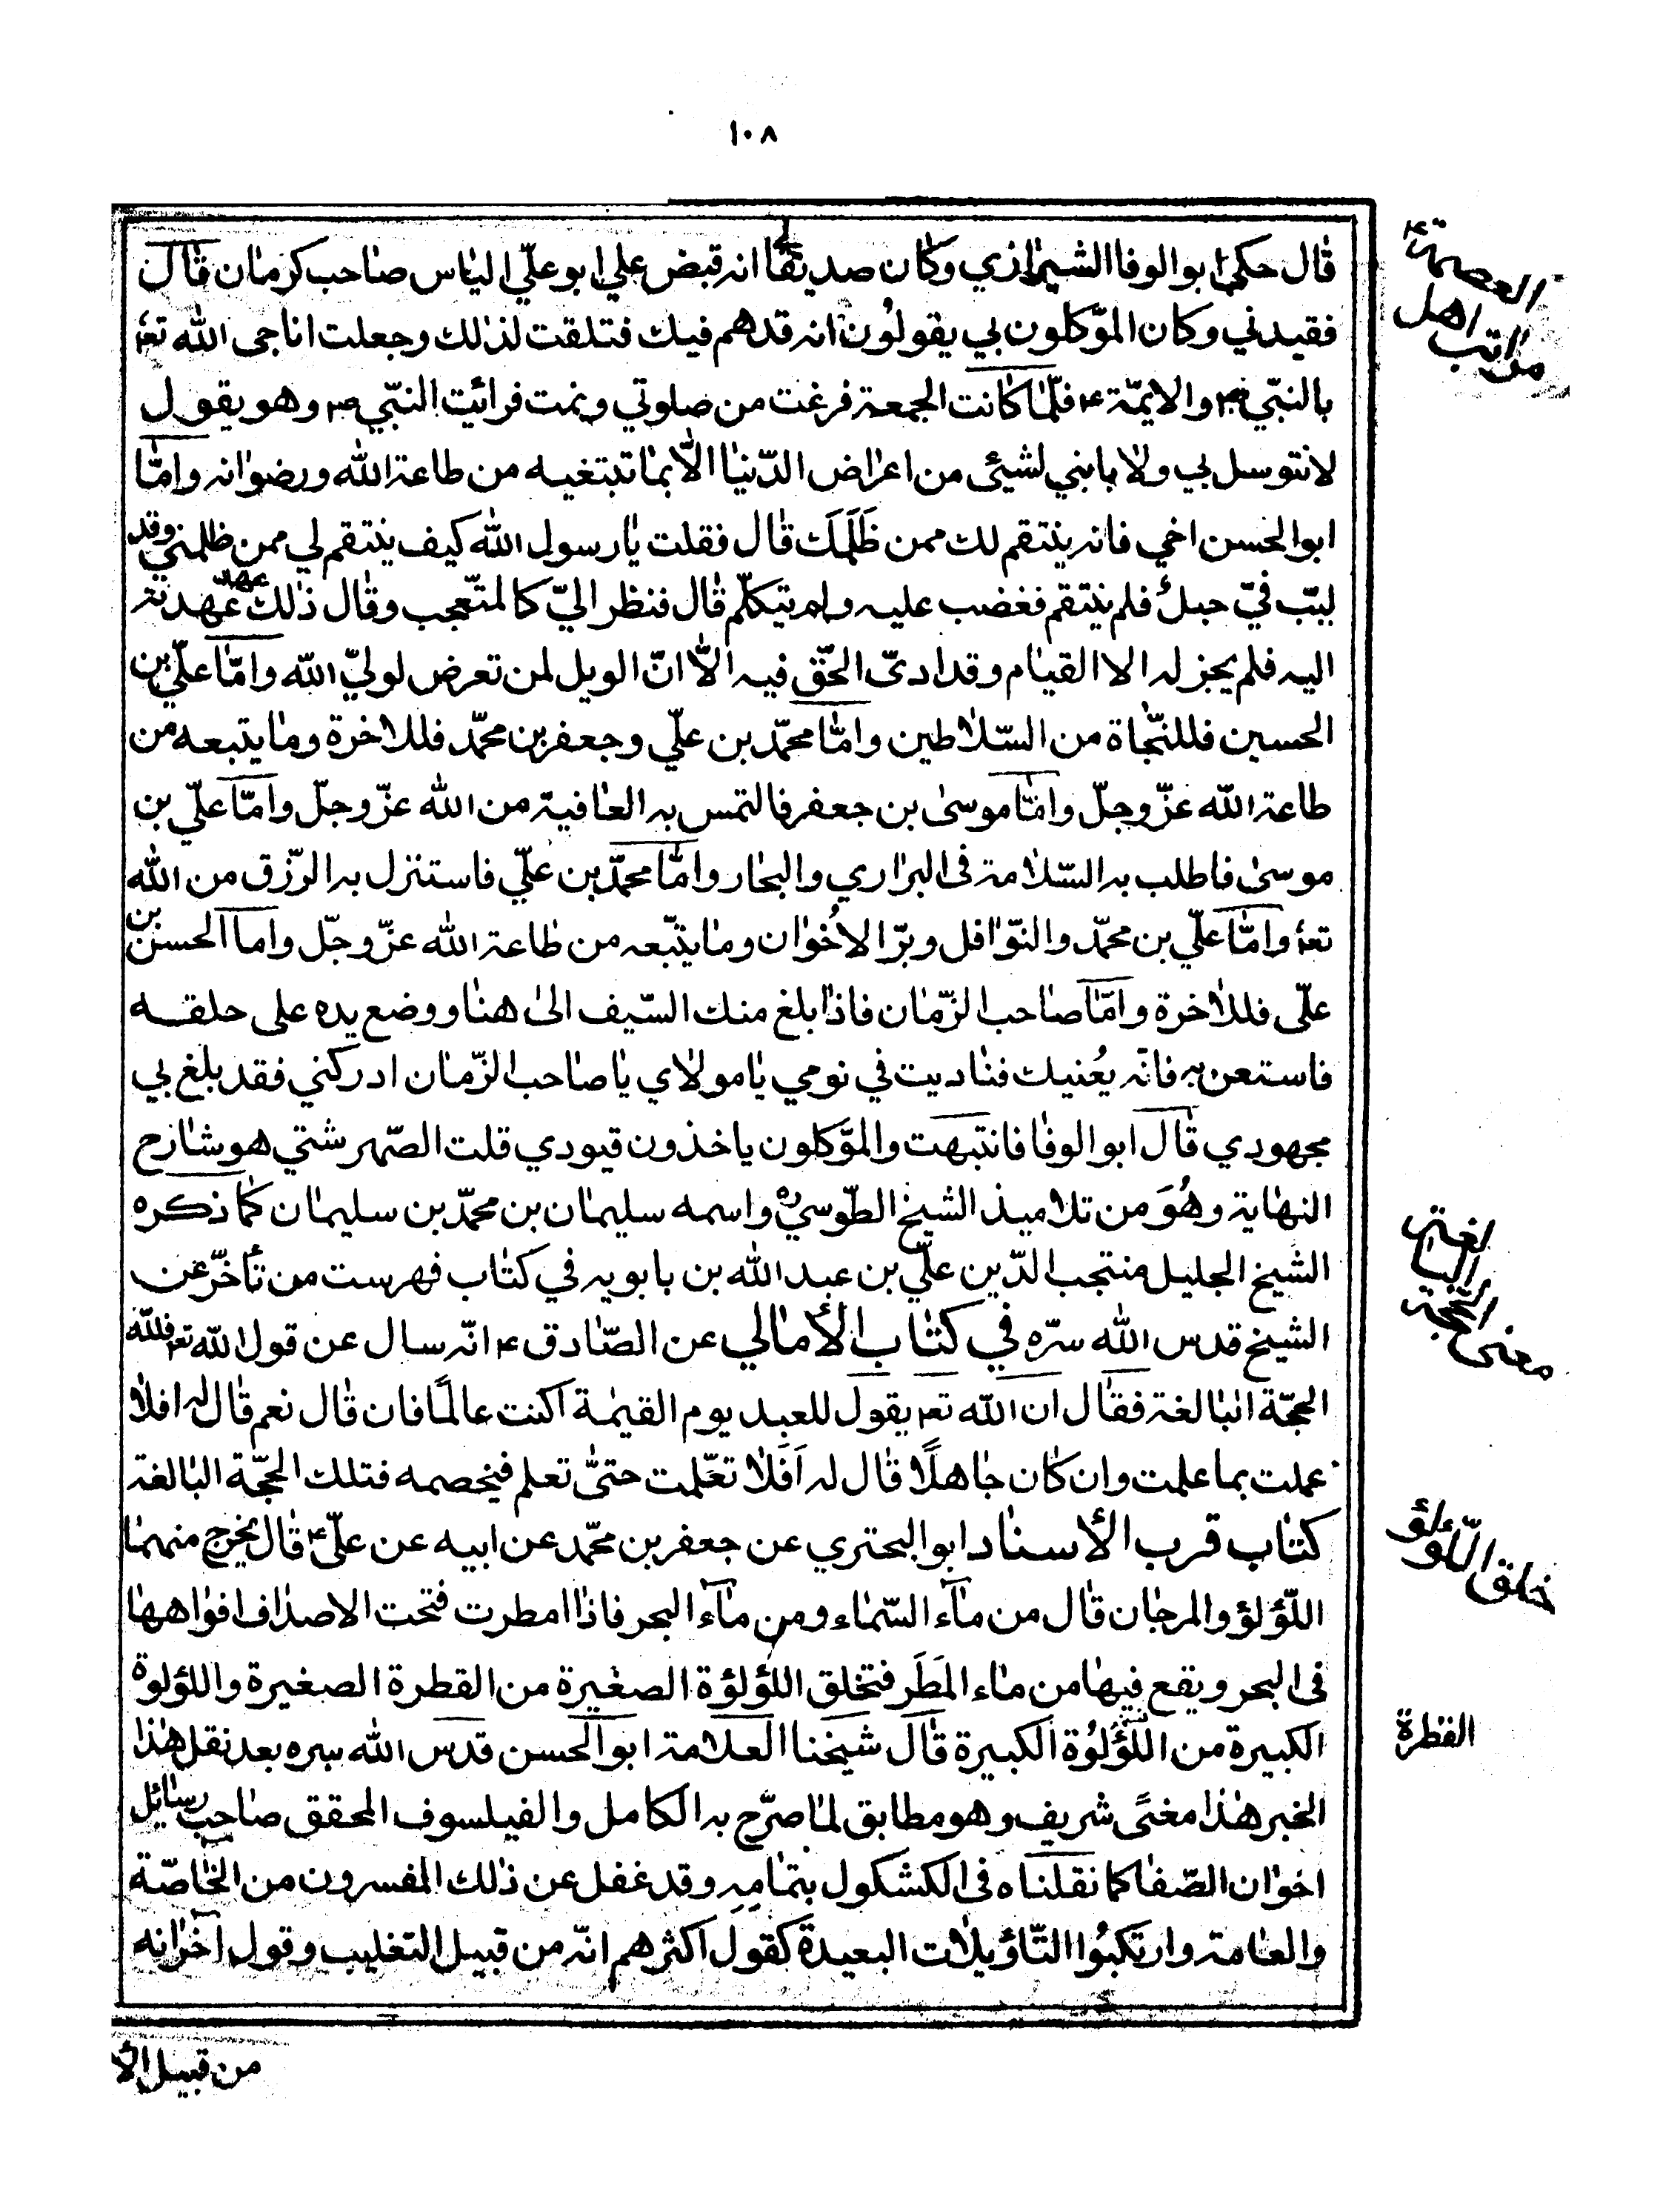 ١٠٨
قال حكى ابو الوفا الشيرازي وكان صديقا لي انه قبض علي ابو علي الياس صاحب كرمان قال
فقيدني وكان الموّكلون بي يقولون انه قد هم فيك فتلقت لذلك وجعلت اناجى الله تعه
بالنبّي ص والايمّة ع فلمّا كانت الجمعة فرغت من صلوتي ونمت فرائيت النبّي ص وهو يقول
لا تتوسل بي ولا بابني لشيئ من اعراض الدّنيا الاّ بما تبتغيه من طاعة الله ورضوانه وامّا
ابو الحسن اخي فانه ينتقم لك ممن ظَلَمَك قال فقلت يا رسول الله كيف ينتقم لي ممن ظلمني وقد
لبّب في حبل فلم ينتقم فغضب عليه ولم يتكلّم قال فنظر اليّ كالمتّعجب وقال ذلك عهد عهدته
اليه فلم يجز له الا القيام وقد ادىّ الحّق فيه الاّ انّ الويل لمن تعرض لوليّ الله وامّا علّي بن
الحسين فللنّجاة من السّلاطين وامّا محمّد بن علّي وجعفر بن محمّد فللاخرة وما يتبعه من
طاعة الله عزّ وجلّ وامّا موسى بن جعفر فالتمس به العافية من الله عزّ وجلّ وامّا علّي بن
موسى فاطلب به السّلامة فى البراري والبحار وامّا محمّد بن علّي فاستنزل به الرّزق من الله
تعه وامّا علّي بن محمّد والنّوافل وبرّ الاخوان وما يتبّعه من طاعة الله عزّ وجلّ واما الحسن بن
علّى فللاخرة وامّا صاحب الزّمان فاذا بلغ منك السّيف الى هنا ووضع يده على حلقه
فاستعن به فانّه يُعنيك فناديت في نومي يا مولاي يا صاحب الزّمان ادركني فقد بلغ بي
مجهودي قال ابو الوفا فانتبهت والموّكلون ياخذون قيودي قلت الصّهرشتي هو شارح
النهاية وهُوَ من تلاميذ الشيخ الطّوسي ره واسمه سليمان بن محمّد بن سليمان كما ذكره
الشيخ الجليل منتجب الدّين علّي بن عبد الله بن بابويه في كتاب فهرست من تأخّر عن
الشيخ قدس الله سرّه في كتاب الأمالي عن الصّادق ع انّه سال عن قول الله تعه فلله
الحجّة البالغة فقال ان الله تعه يقول للعبد يوم القيمة اكنت عالمًا فان قال نعم قال له افلا
عملت بما علمت وان كان جاهلًا قال له اَفَلا تعّلمت حتىّ تعلم فيخصمه فتلك الحجّة البالغة
كتاب قرب الأسناد ابو البحتري عن جعفر بن محمّد عن ابيه عن علّي ع قال يخرج منهما
اللّؤلؤ والمرجان قال من مآء السّماء ومن مآء البحر فاذا امطرت فتحت الاصداف افواهها
فى البحر ويقع فيها من ماء المَطَر فتخلق اللؤلؤة الصغيرة من القطرة الصغيرة واللؤلوة
الكبيرة من اللؤلُؤة الكبيرة قال شيخنا العلامة ابو الحسن قدس الله سره بعد نقل هذا
الخبر هذا معنًى شريف وهو مطابق لما صرّح به الكامل والفيلسوف المحقق صاحب رسائل
اخوان الصّفا كما نقلناه فى الكشكول بتمامِه وقد غفل عن ذلك المفسرون من الخاصّة
والعامة وارتكبُوا التّاؤيلات البعيدة كقول اكثرهم انّه من قبيل التغليب وقول آخر انه
من قبيل الأ
مراتب اهل
العصمة ع
معنى الحجّة
البالغة
خلق اللّؤلؤ
القطرة